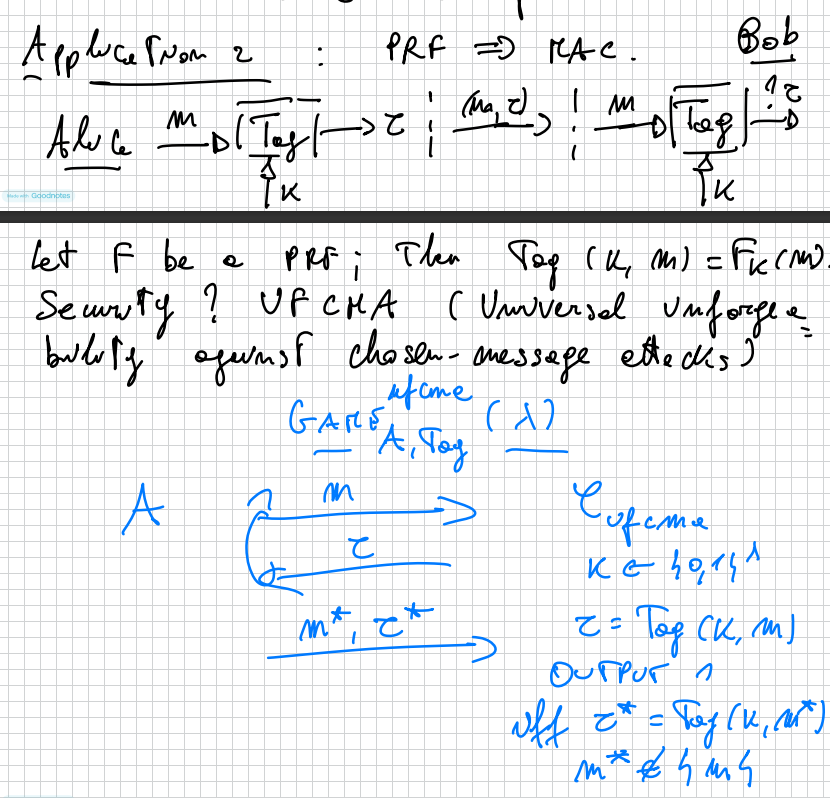 Application 2 : PRF ⇒ MAC. Bob
Alice m Tag τ (m, τ) m Tag ? τ
K K
Made with Goodnotes
Let F be a PRF; Then Tag (K, m) = F_K(m).
Security? UFCMA (Universal unforgea=
bility against chosen-message attacks)
GAME^ufcma_A,Tag (λ)
A m C_ufcma
τ K ← {0,1}^λ
m*, τ* τ = Tag (K, m)
OUTPUT 1
iff τ* = Tag (K, m*)
m* ∉ {m}